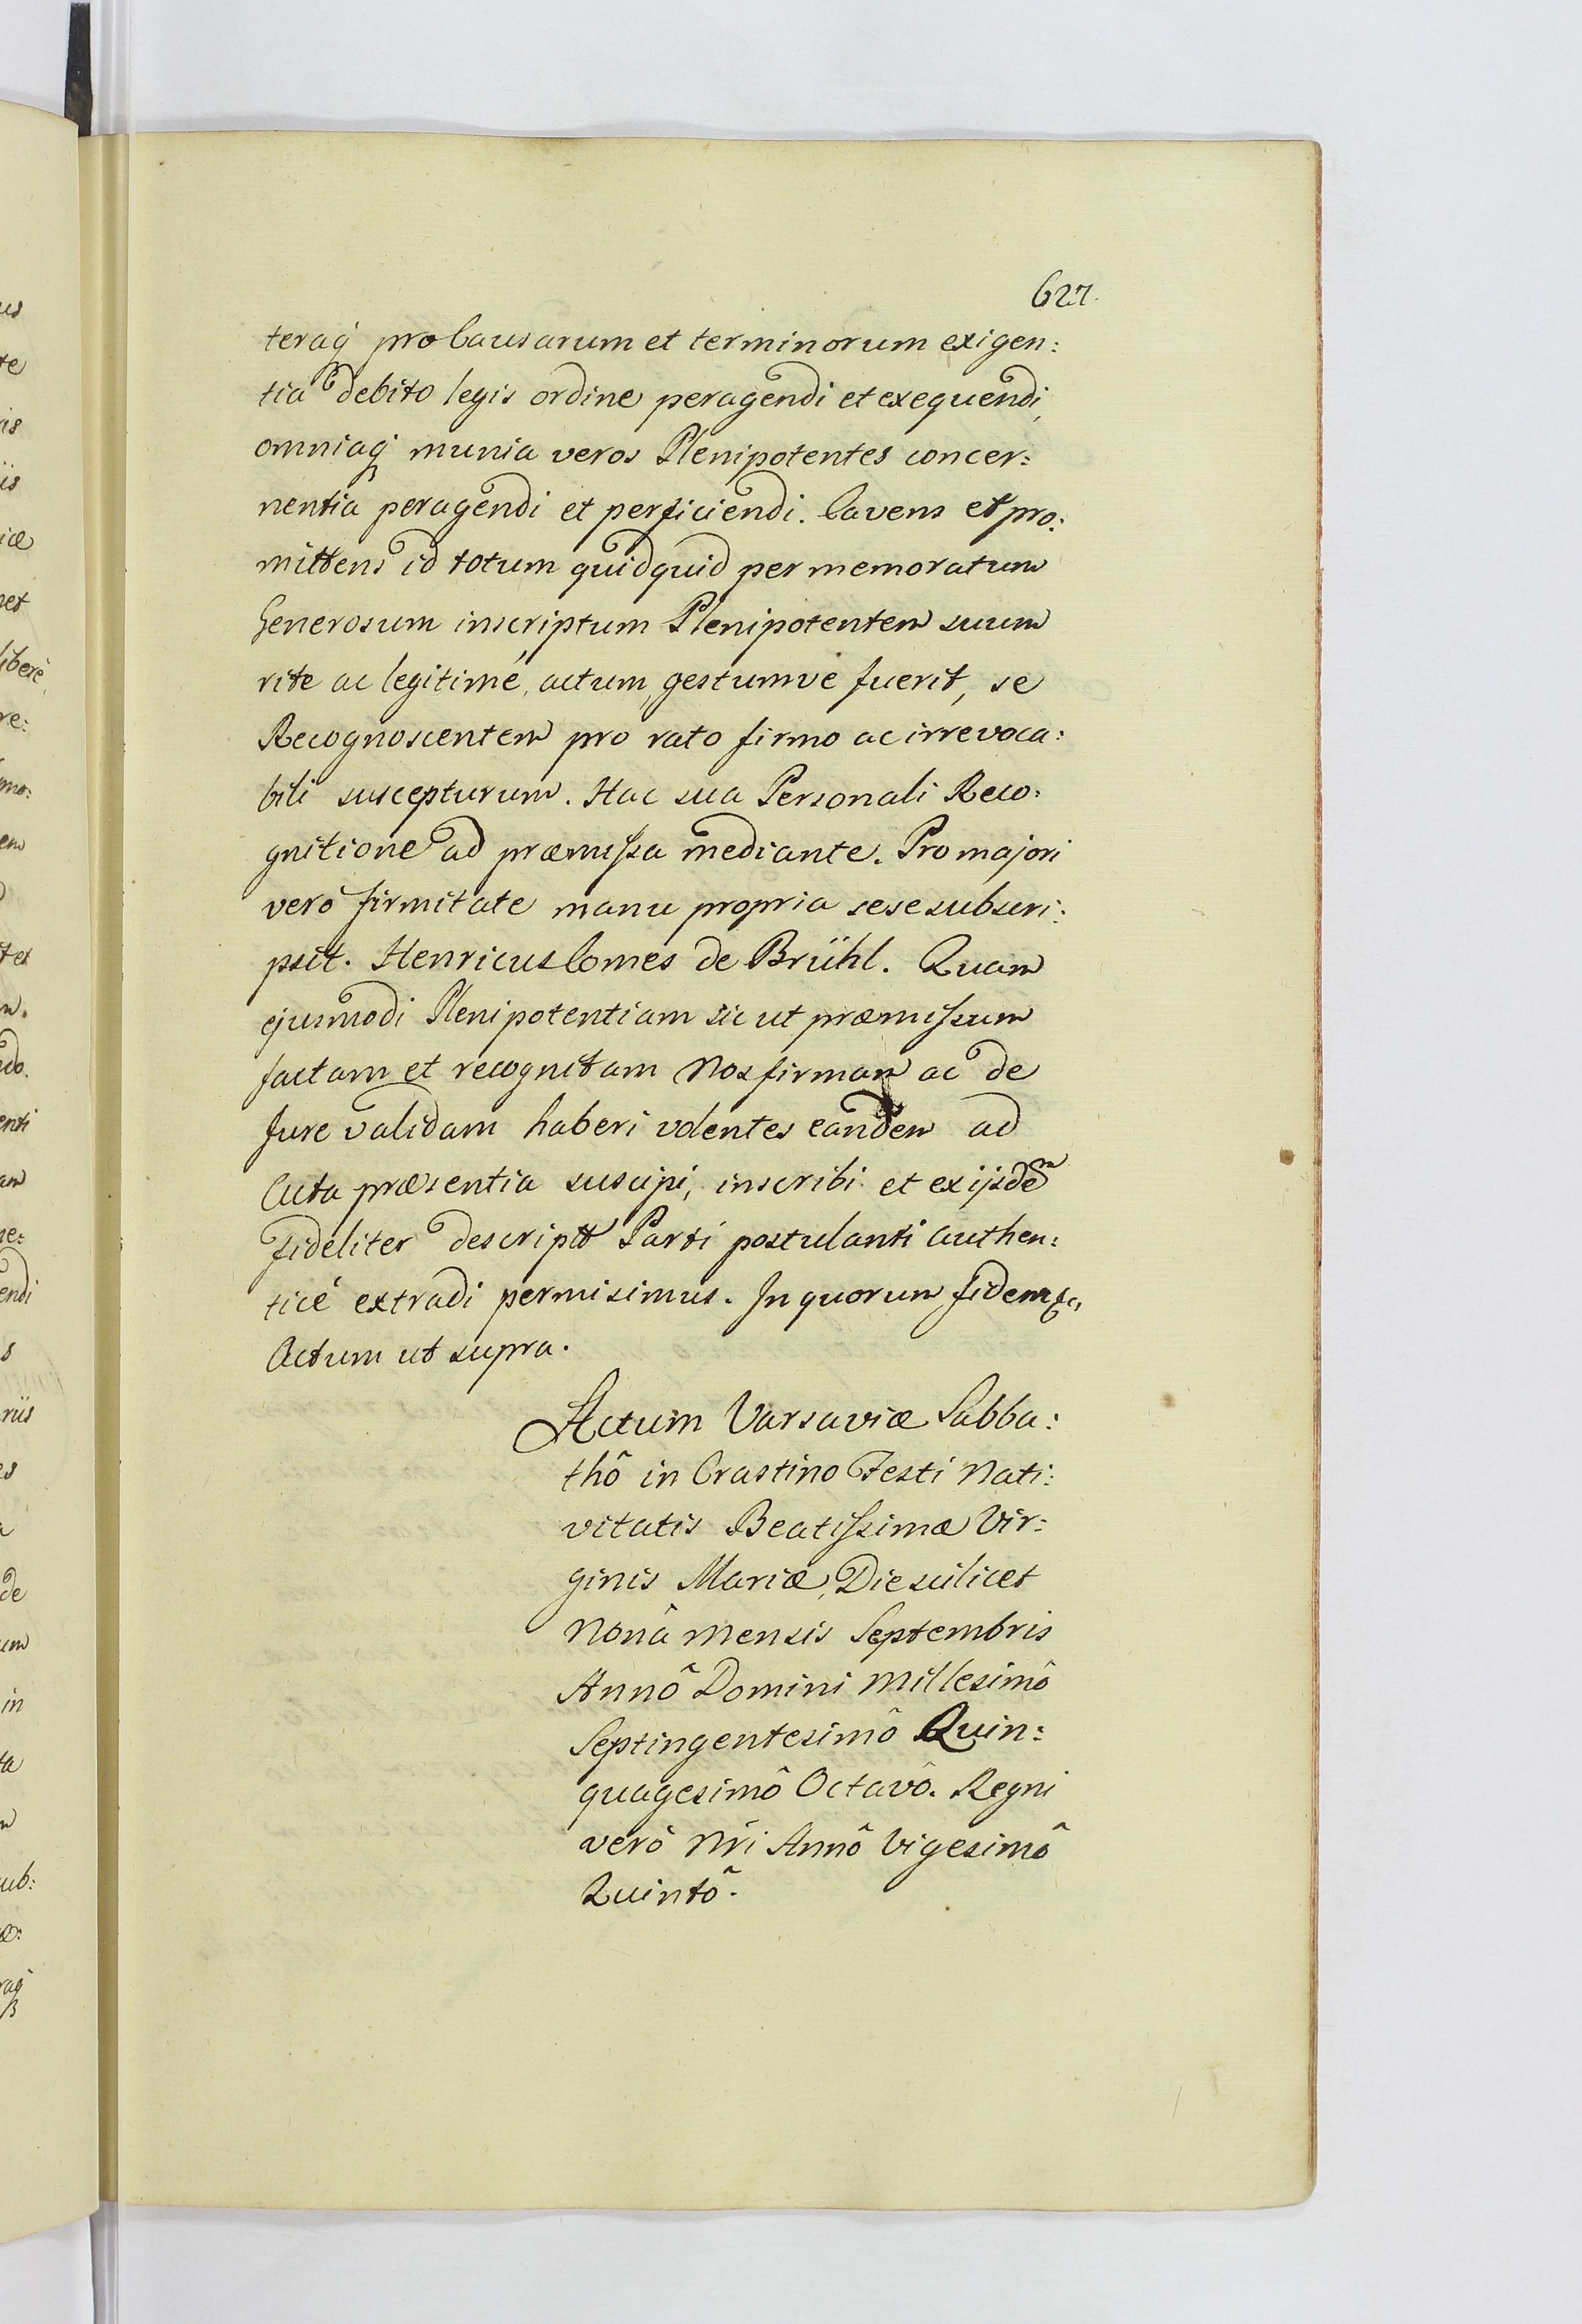 627.
teraq₃ pro Causarum et terminorum exigen:
tia debito legis ordine peragendi et exequendi,
omniaq₃ munia veros Plenipotentes concer:
nentia peragendi et perficiendi. Cavens et pro:
mittens id totum quidquid per memoratum
Generosum inscriptum Plenipotentem suum
rite ac legitimé, actum, gestumve fuerit, se
Recognoscentem pro rato firmo ac irrevoca:
bili suscepturum. Hac sua Personali Reco:
gnitione ad præmissa mediante. Pro majori
verò firmitate manu propria sese subscri:
psit. Henricus Comes de Brühl. Quam
ejusmodi Plenipotentiam sic ut præmissum
factam et recognitam Nos firmam ac de
Jure validam haberi volentes eandem ad
Acta præsentia suscipi, inscribi et ex ijsdem
fideliter descriptt Parti postulanti authen:
ticé extradi permisimus. In quorum fidem &c,
Actum ut supra.
Actum Varsaviæ Sabba:
thô in Crastino Festi Nati:
vitatis Beatissimæ Vir:
ginis Mariæ, Die scilicet
Nonâ Mensis Septembris
Annô Domini Millesimô
Septingentesimô Quin:
quagesimô Octavô. Regni
verò Nri Annô Vigesimô
Quintô.